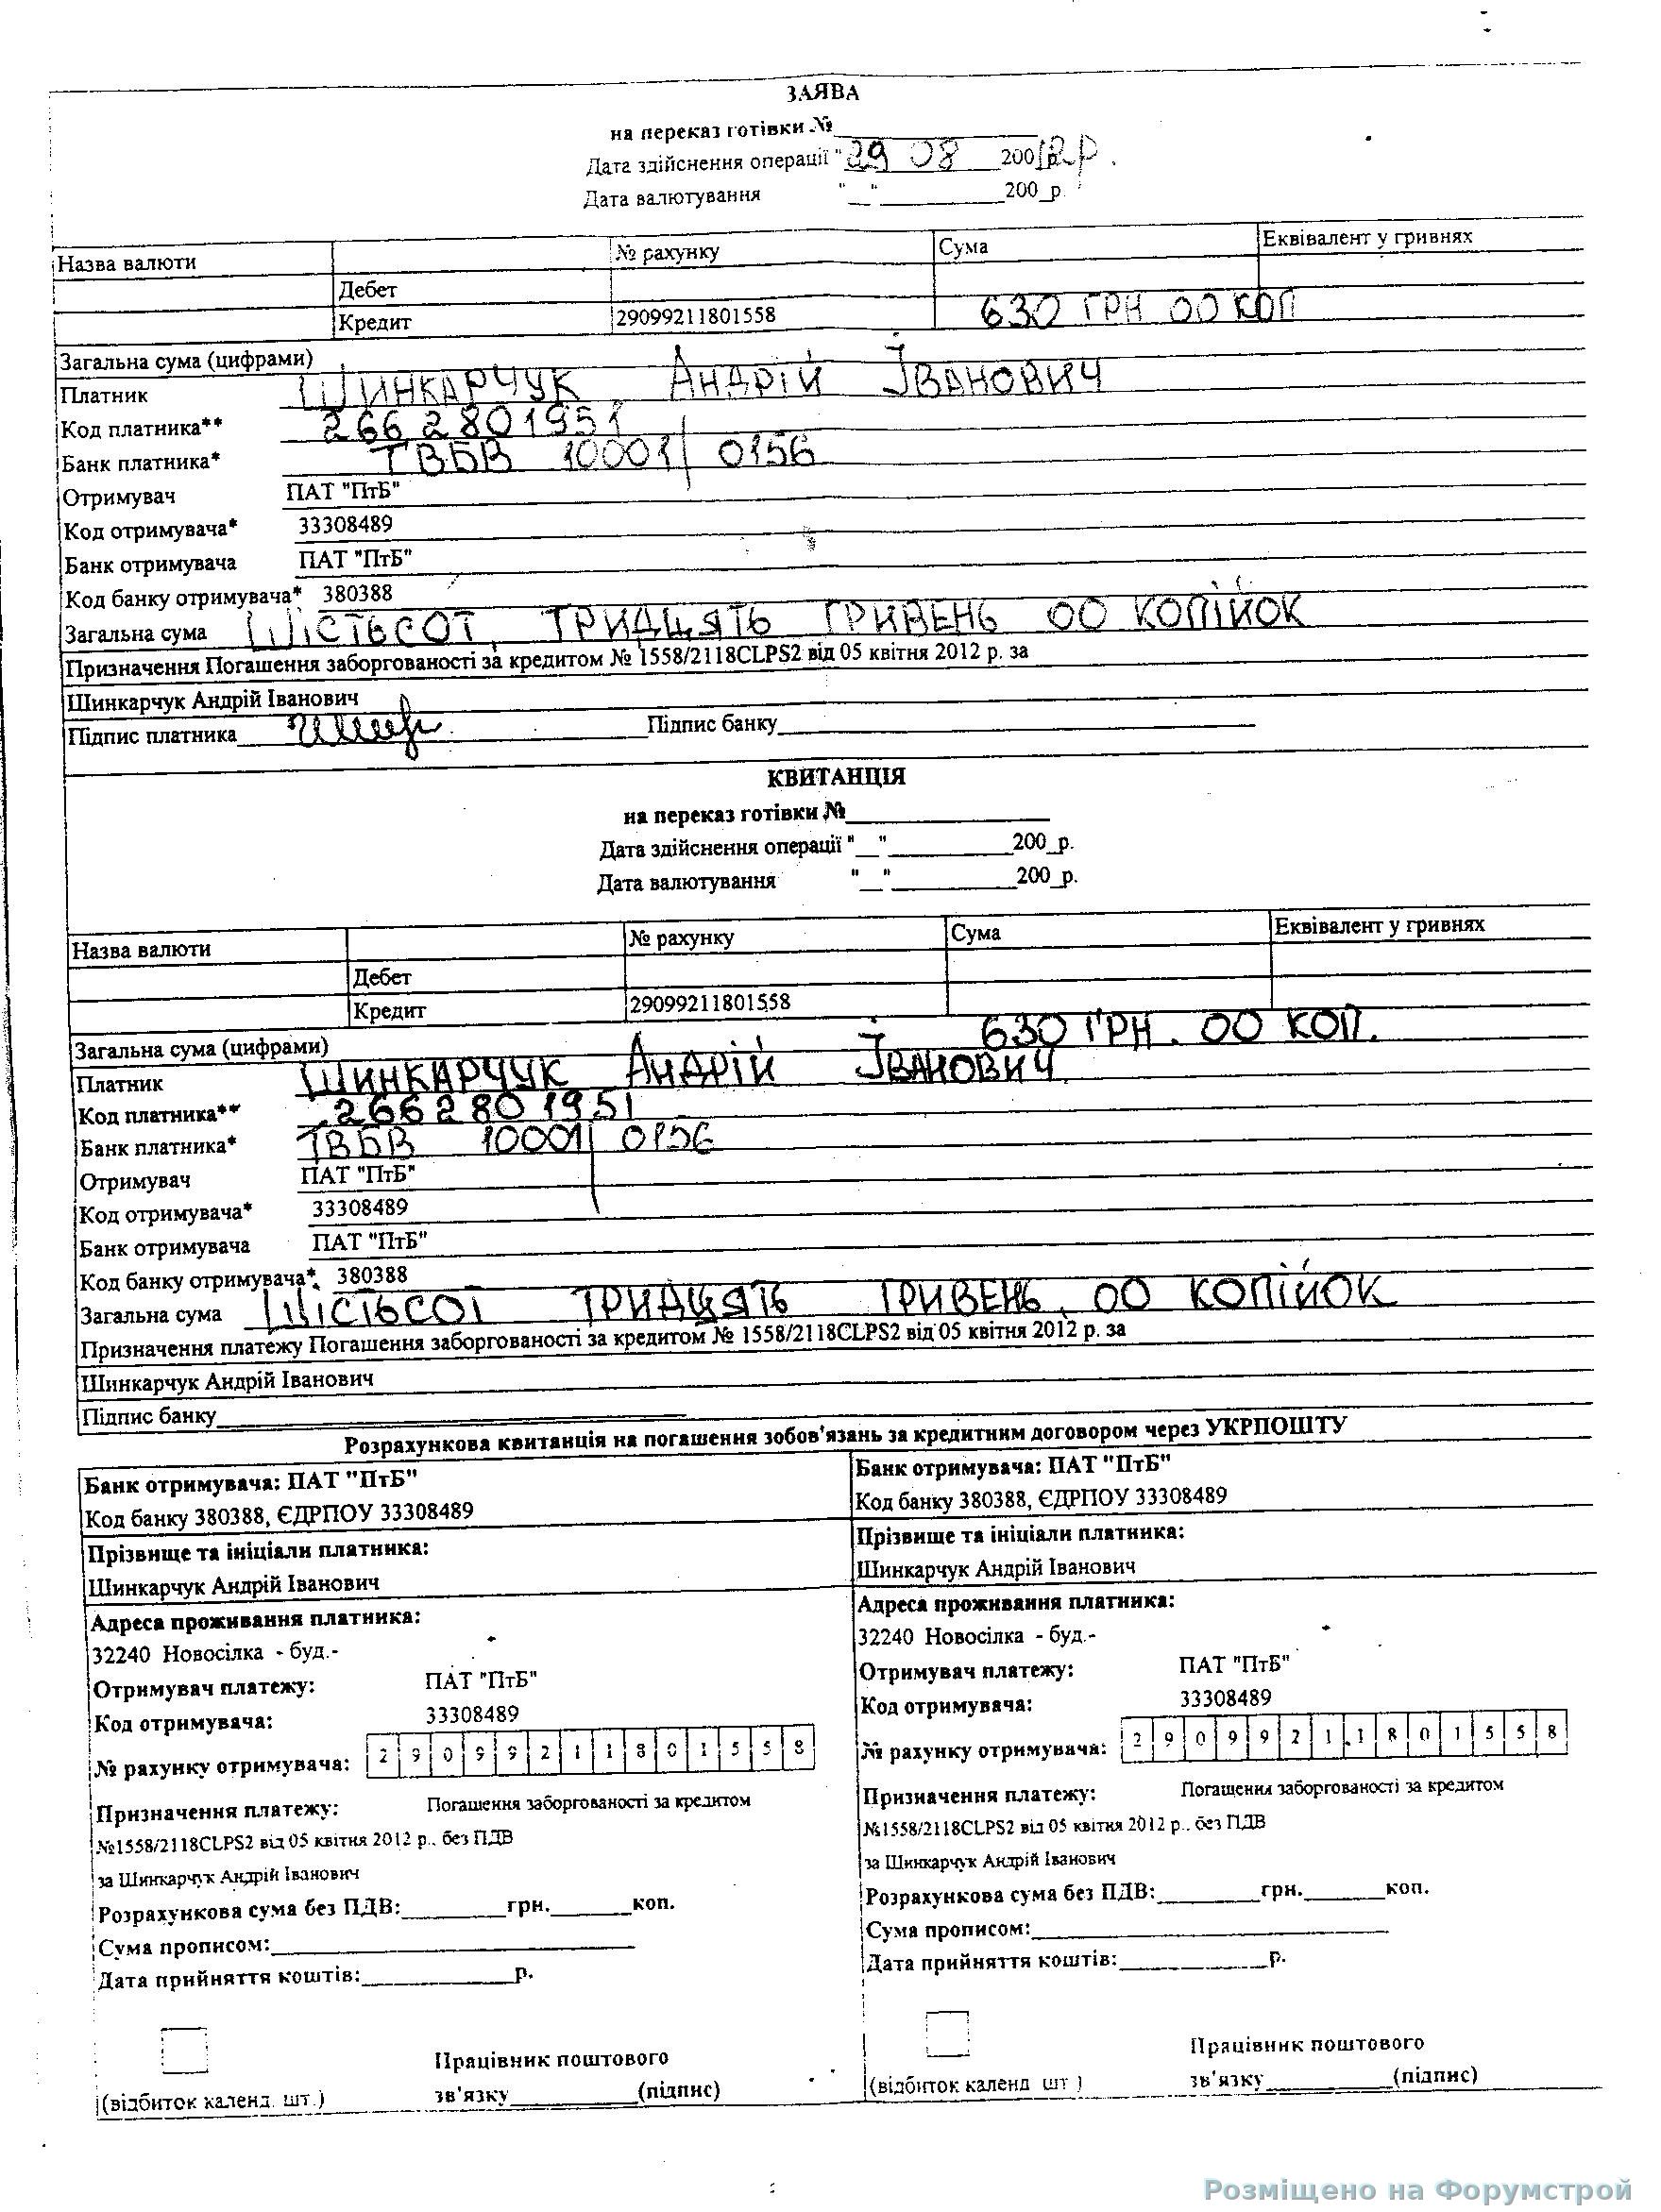 ЗАЯВА
на переказ готівки №
Дата здійснення операції "29 08 200 12р.
Дата валютування "__"____________200_р.
Назва валюти № рахунку Сума Еквівалент у гривнях
Дебет
Кредит 29099211801558 630 ГРН 00 КОП
Загальна сума (цифрами)
Платник ШИНКАРЧУК АНДРІЙ ІВАНОВИЧ
Код платника** 2662801951
Банк платника* ТВБВ 10001/0156
Отримувач ПАТ "ПтБ"
Код отримувача* 33308489
Банк отримувача ПАТ "ПтБ"
Код банку отримувача* 380388
Загальна сума ШІСТЬСОТ ТРИДЦЯТЬ ГРИВЕНЬ 00 КОПІЙОК
Призначення Погашення заборгованості за кредитом № 1558/2118CLPS2 від 05 квітня 2012 р. за
Шинкарчук Андрій Іванович
Підпис платника Підпис банку
КВИТАНЦІЯ
на переказ готівки №
Дата здійснення операції "__"____________200_р.
Дата валютування "__"____________200_р.
Назва валюти № рахунку Сума Еквівалент у гривнях
Дебет
Кредит 29099211801558
Загальна сума (цифрами) 630 ГРН. 00 КОП.
Платник ШИНКАРЧУК АНДРІЙ ІВАНОВИЧ
Код платника** 2662801951
Банк платника* ТВБВ 10001/0156
Отримувач ПАТ "ПтБ"
Код отримувача* 33308489
Банк отримувача ПАТ "ПтБ"
Код банку отримувача* 380388
Загальна сума ШІСТЬСОТ ТРИДЦЯТЬ ГРИВЕНЬ 00 КОПІЙОК
Призначення платежу Погашення заборгованості за кредитом № 1558/2118CLPS2 від 05 квітня 2012 р. за
Шинкарчук Андрій Іванович
Підпис банку
Розрахункова квитанція на погашення зобов'язань за кредитним договором через УКРПОШТУ
Банк отримувача: ПАТ "ПтБ"
Код банку 380388, ЄДРПОУ 33308489
Прізвище та ініціали платника:
Шинкарчук Андрій Іванович
Адреса проживання платника:
32240 Новосілка - буд.-
Отримувач платежу: ПАТ "ПтБ"
Код отримувача: 33308489
№ рахунку отримувача: 29099211801558
Призначення платежу: Погашення заборгованості за кредитом
№1558/2118CLPS2 від 05 квітня 2012 р., без ПДВ
за Шинкарчук Андрій Іванович
Розрахункова сума без ПДВ:________грн.______коп.
Сума прописом:
Дата прийняття коштів:____________р.
Працівник поштового
(відбиток календ. шт.) зв'язку__________(підпис)
Банк отримувача: ПАТ "ПтБ"
Код банку 380388, ЄДРПОУ 33308489
Прізвище та ініціали платника:
Шинкарчук Андрій Іванович
Адреса проживання платника:
32240 Новосілка - буд.-
Отримувач платежу: ПАТ "ПтБ"
Код отримувача: 33308489
№ рахунку отримувача: 29099211801558
Призначення платежу: Погашення заборгованості за кредитом
№1558/2118CLPS2 від 05 квітня 2012 р., без ПДВ
за Шинкарчук Андрій Іванович
Розрахункова сума без ПДВ:________грн.______коп.
Сума прописом:
Дата прийняття коштів:____________р.
Працівник поштового
(відбиток календ. шт.) зв'язку__________(підпис)
Розміщено на Форумстрой